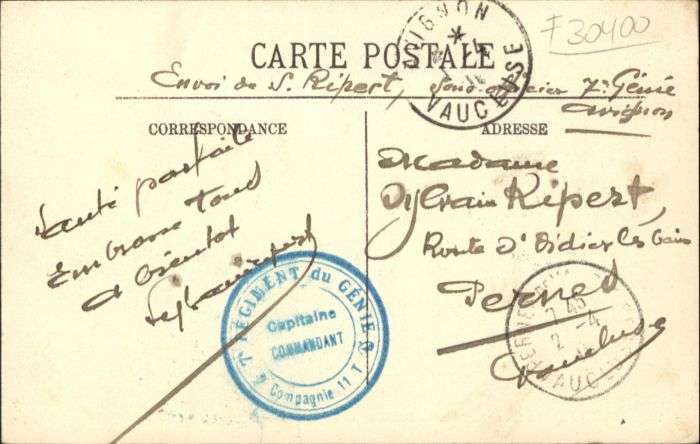 F30400
AVIGNON
VAUCLUSE
CARTE POSTALE
Envoi de S. Ripert, sous-officier 7e Génie
Avignon
CORRESPONDANCE
Santé parfaite
Embrasse tous
A bientôt
ADRESSE
Madame
Sylvain Ripert,
Route St Didier les bains
Pernes
Vaucluse
7e RÉGIMENT du GÉNIE
Capitaine
COMMANDANT
Compagnie 11 T
2 -4